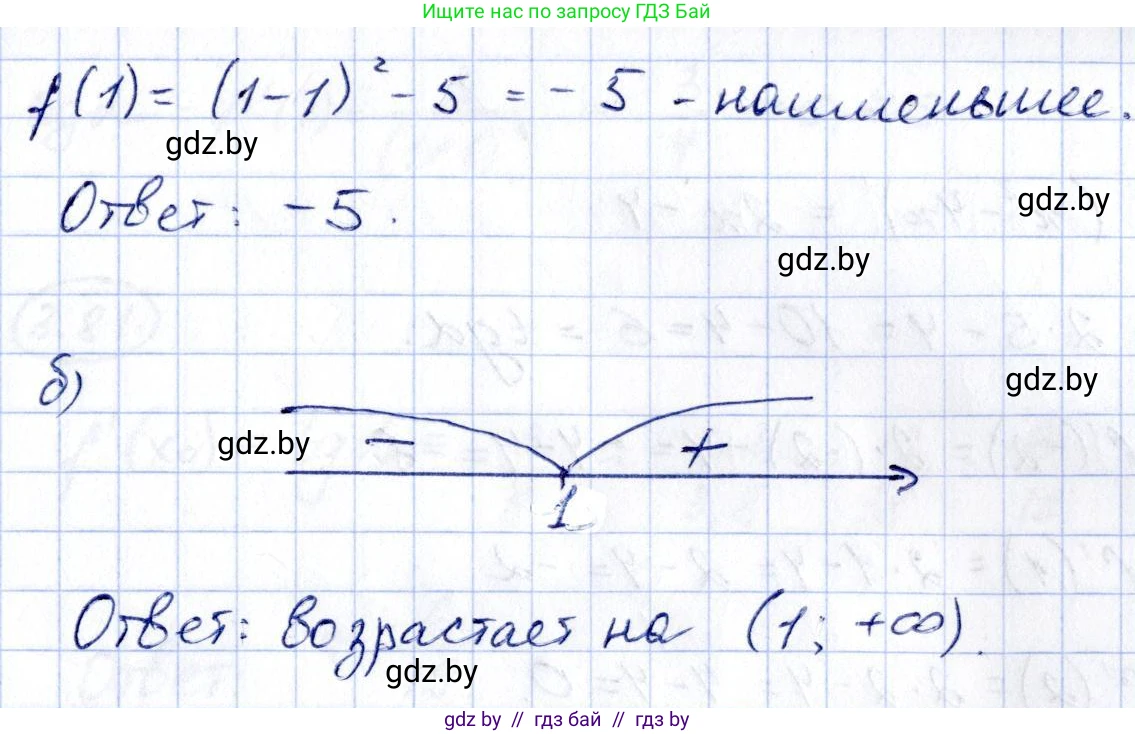 Ищите нас по запросу ГДЗ Бай
f(1) = (1-1)² - 5 = -5 - наименьшее.
gdz.by
gdz.by
Ответ: -5.
gdz.by
б)
gdz.by
gdz.by
- +
1
Ответ: возрастает на (1; +∞).
gdz.by
gdz by // гдз бай // гдз by